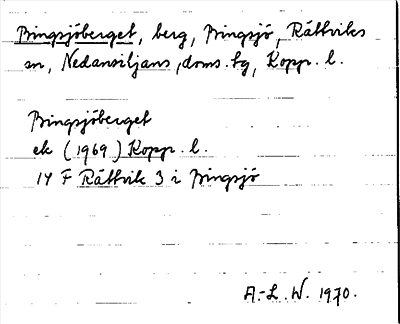 Bingsjöberget, berg, Bingsjö, Rättviks
sn, Nedansiljans, doms. tg, Kopp. l.
Bingsjöberget
ek (1969) Kopp. l.
14 F Rättvik 3 i Bingsjö
A.-L. W. 1970.